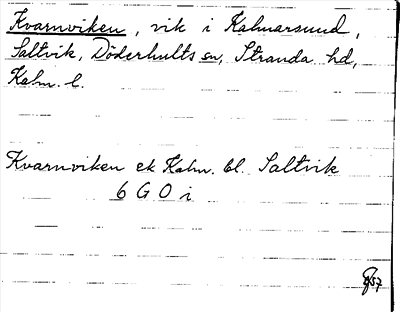 Kvarnviken, vik i Kalmarsund,
Saltvik, Döderhults sn, Stranda hd,
Kalm. l.
Kvarnviken ek Kalm. bl. Saltvik
6 G 0 i
57